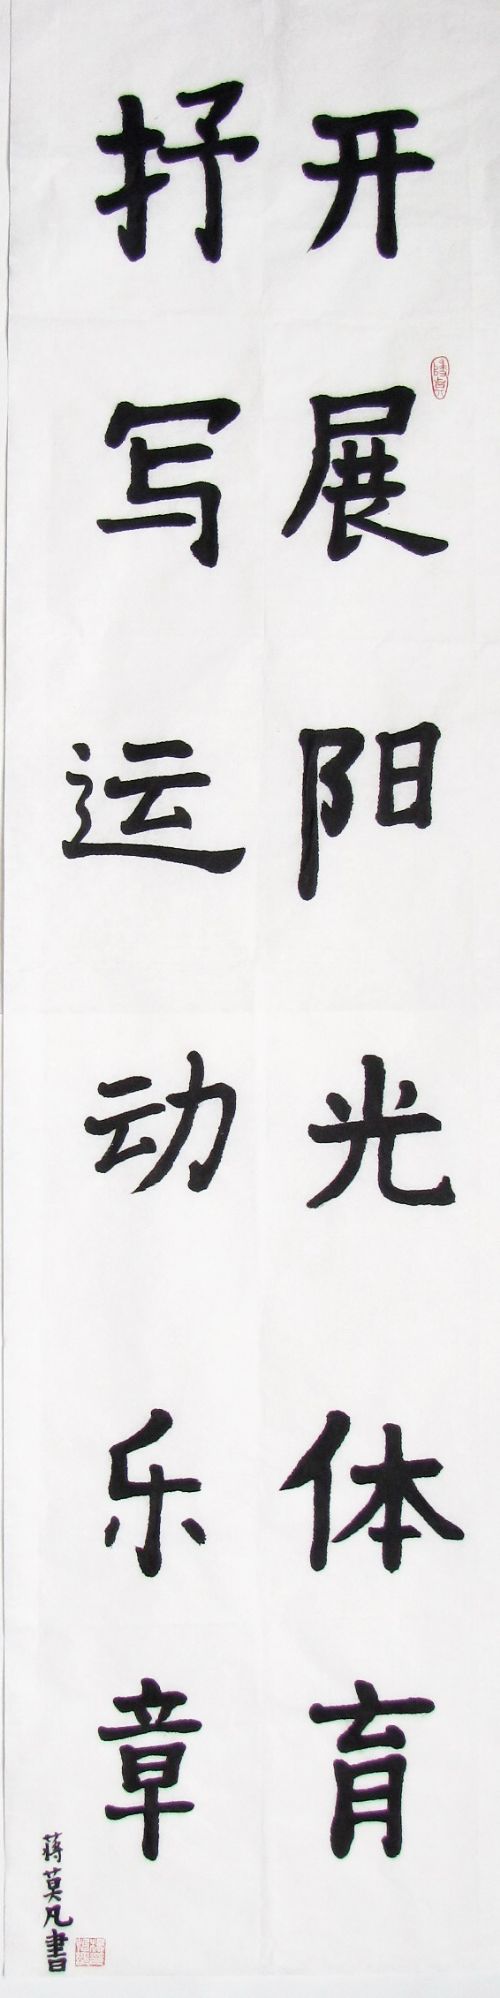 开展阳光体育
抒写运动乐章
蒋莫凡書